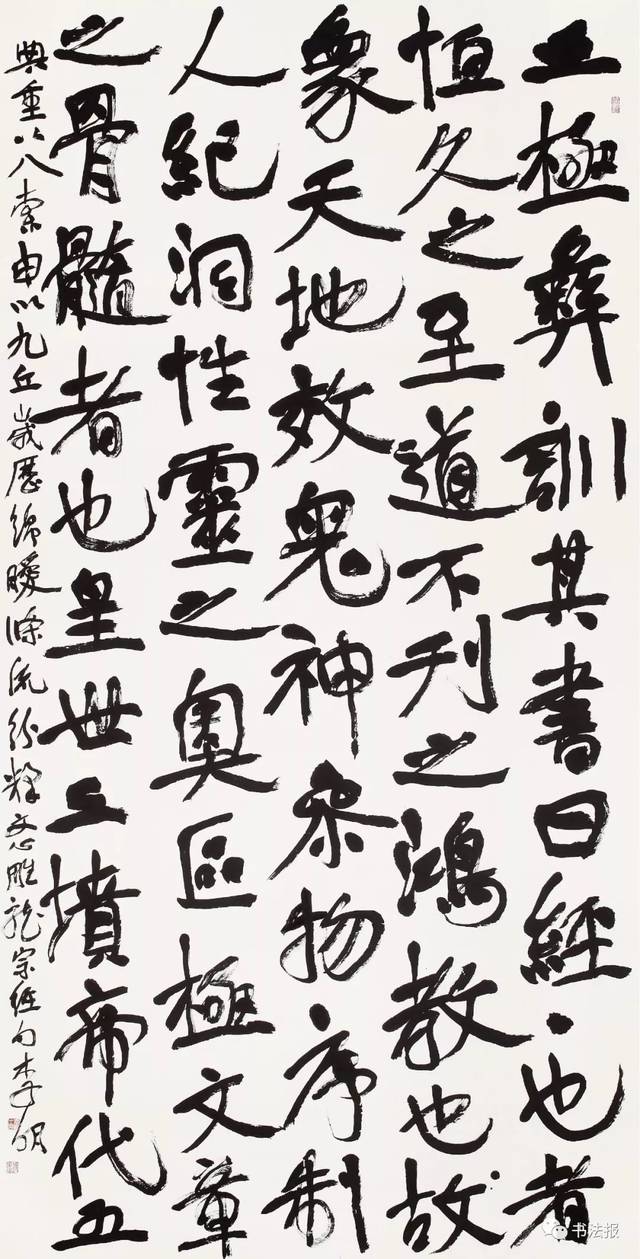 三極彝訓其書曰經〻也者
恒久之至道不刊之鴻教也故
象天地效鬼神參物序制
人紀洞性靈之奧區極文章
之骨髓者也皇世三墳帝代五
典重以八索申以九丘歲歷綿曖條流紛糅文心雕龍宗經句李明
书法报